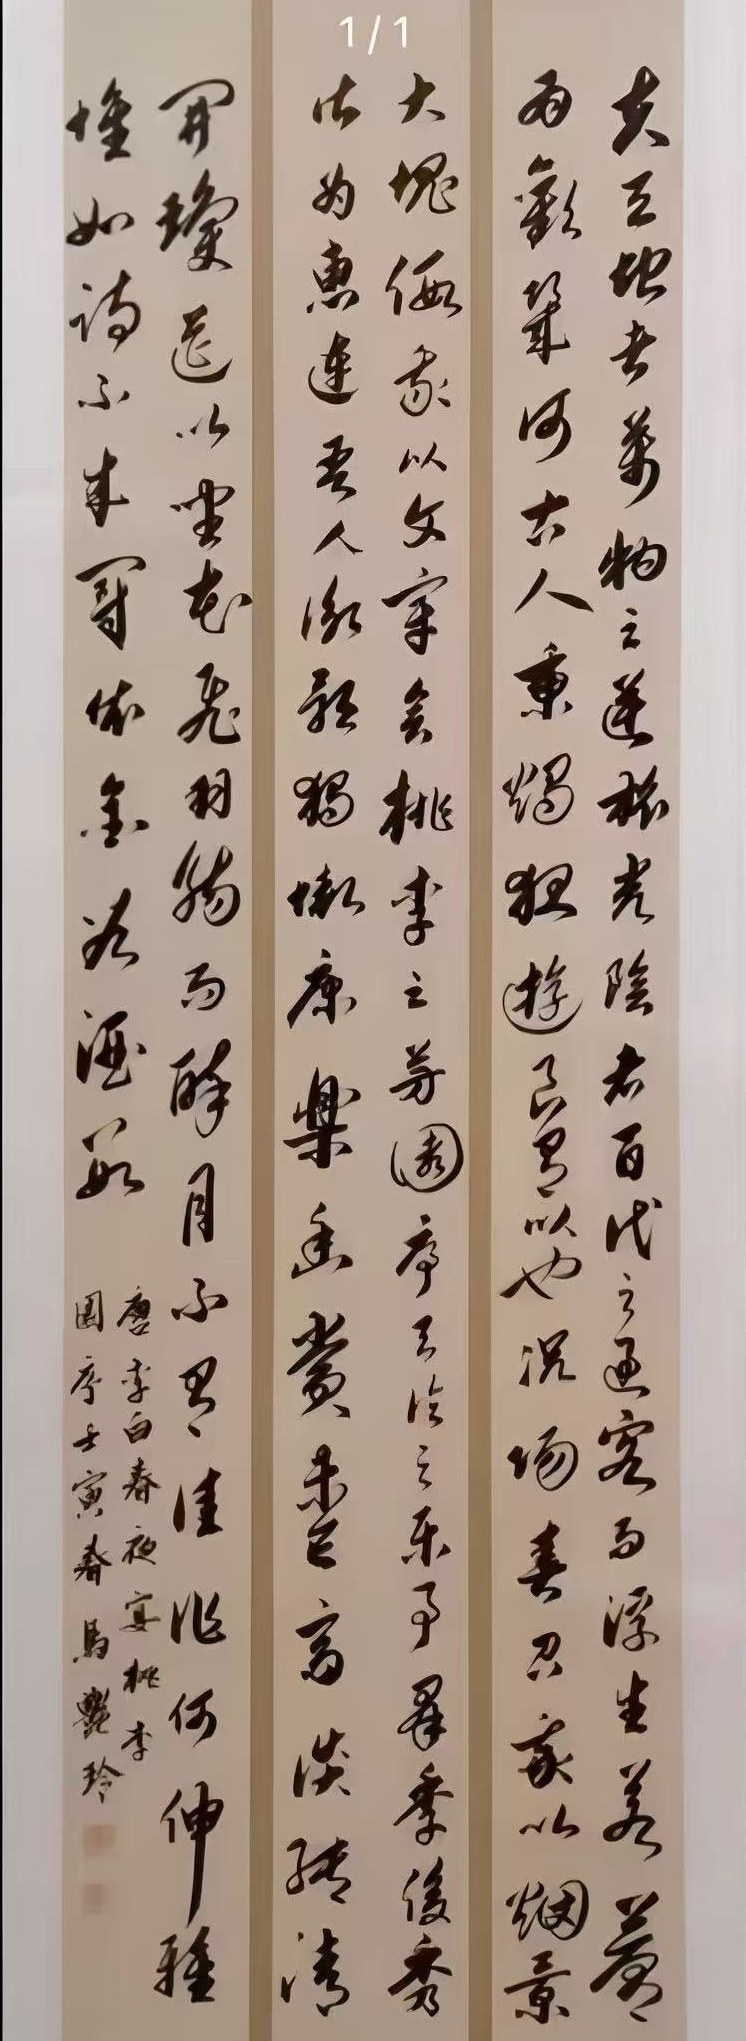 1/1
夫天地者萬物之逆旅光陰者百代之過客而浮生若夢
為歡幾何古人秉燭夜遊良有以也況陽春召我以烟景
大塊假我以文章會桃李之芳園序天倫之樂事群季俊秀
皆為惠連吾人詠歌獨慚康樂幽賞未已高談轉清
開瓊筵以坐花飛羽觴而醉月不有佳作何伸雅
懷如詩不成罰依金谷酒數
唐李白春夜宴桃李
園序壬寅春馬艷玲